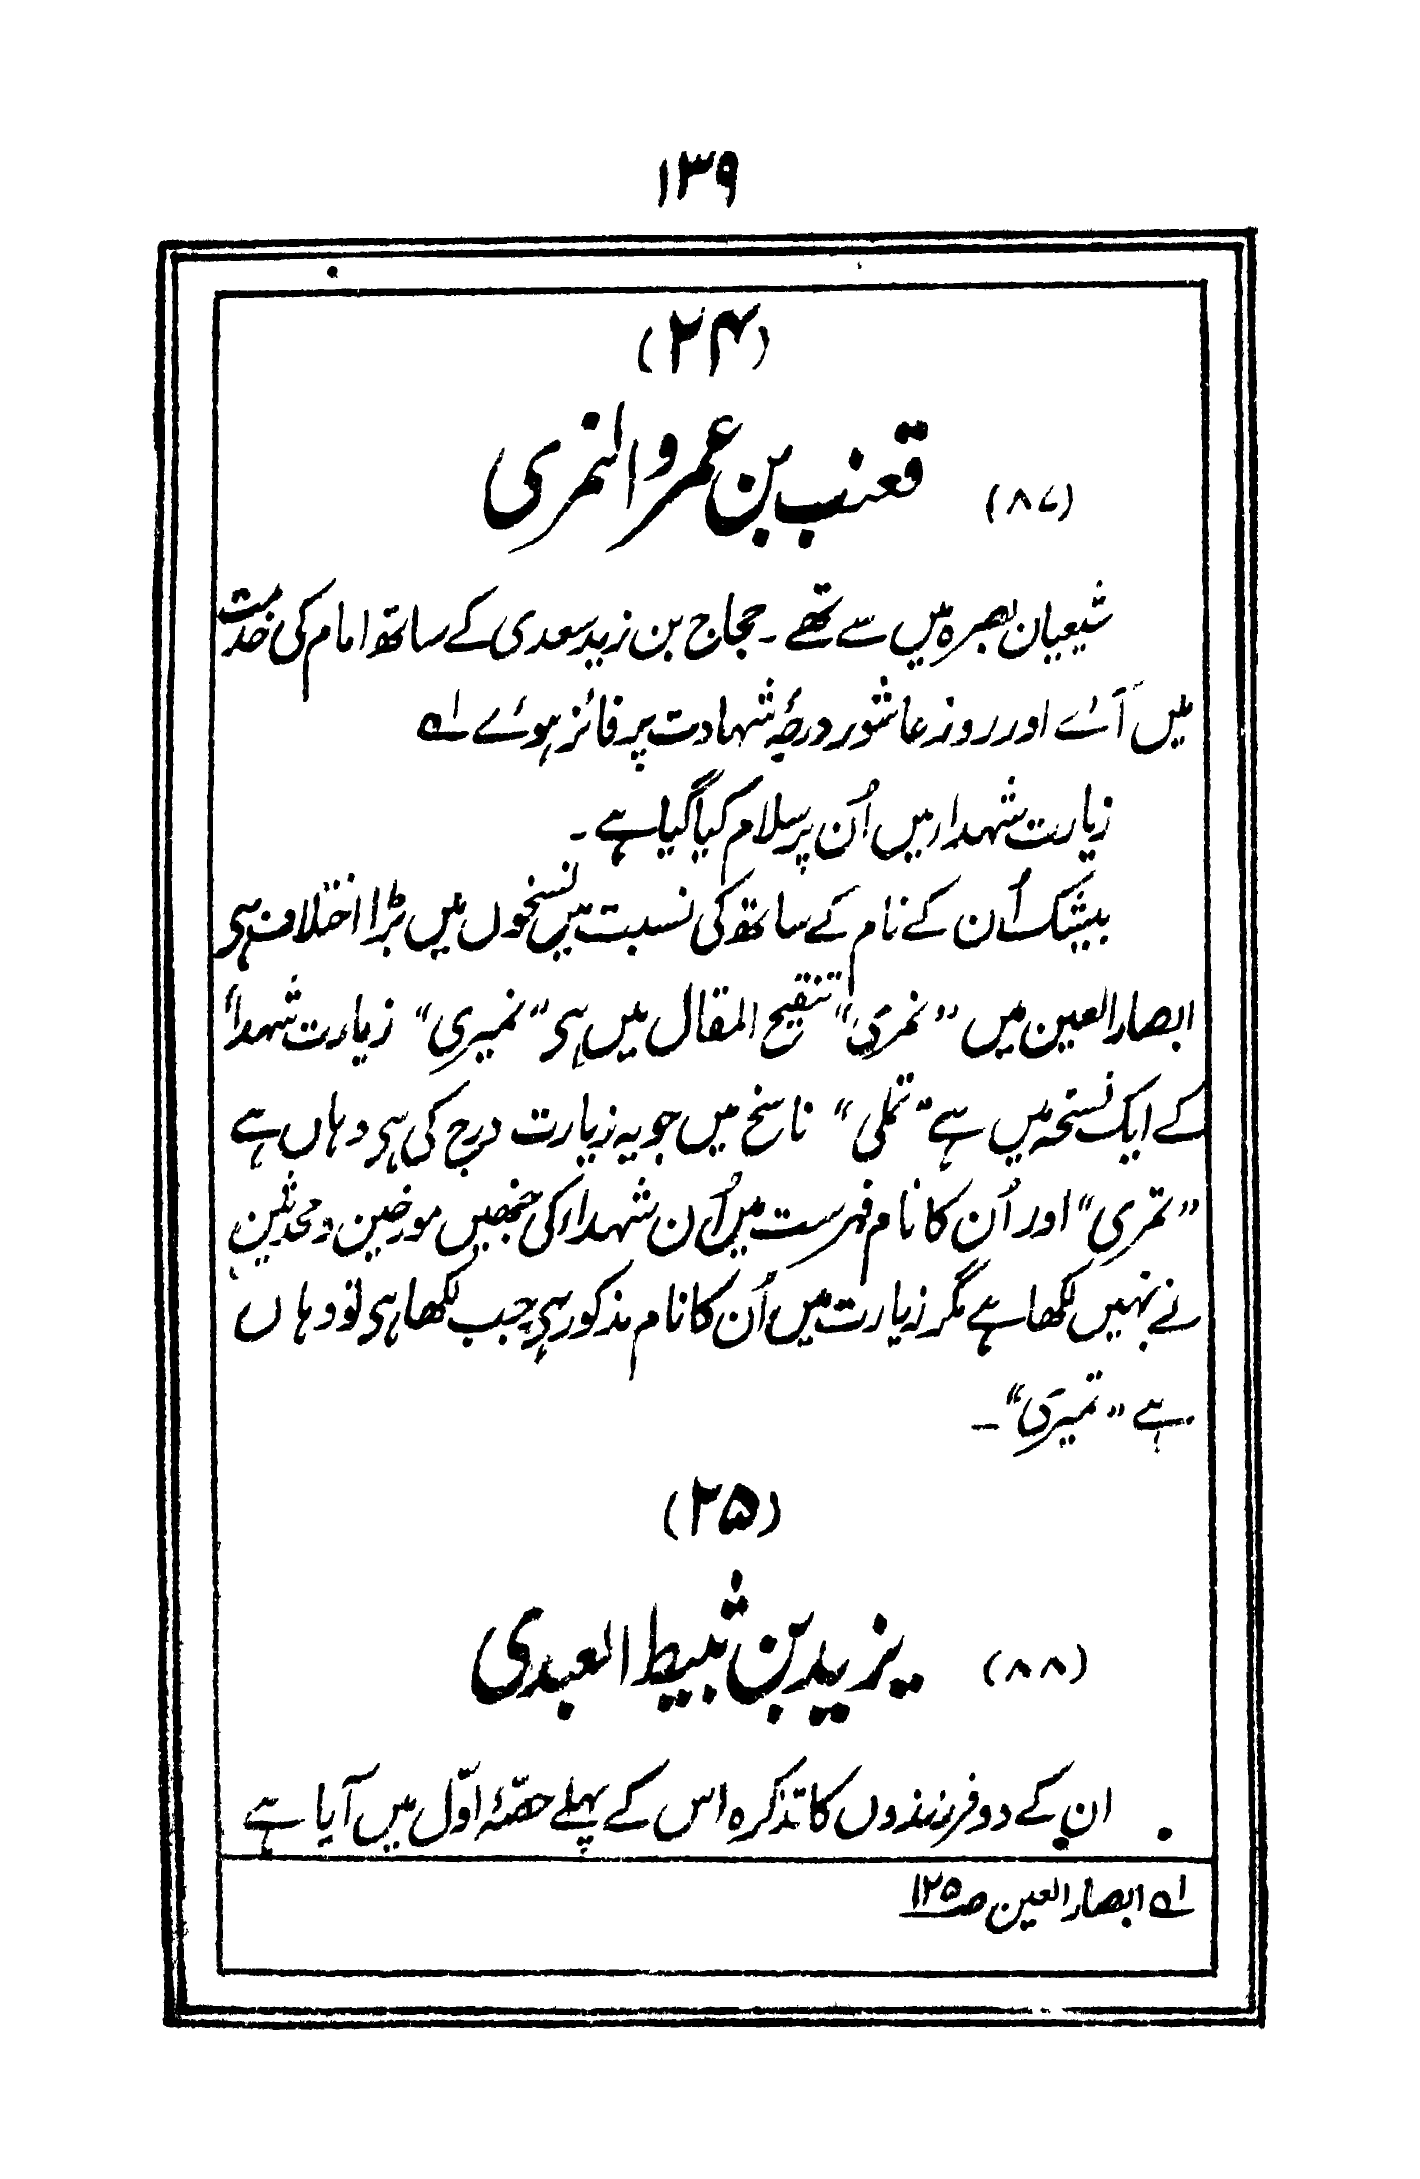 ۱۳۹
(۲۴)
(۸۷) قعنب بن عمرو النمری
شیعیان بصرہ میں سے تھے ۔ حجاج بن زید سعدی کے ساتھ امام کی خدمت
میں آئے اور روز عاشور درجۂ شہادت پر فائز ہوئے لہ
زیارت شہداء میں اُن پر سلام کیا گیا ہے ۔
بیشک اُن کے نام کے ساتھ کی نسبت میں نسخوں میں بڑا اختلاف ہی
ابصار العین میں "نمری" تنقیح المقال میں ہی "نمیری" زیارت شہداً
کے ایک نسخہ میں ہے "تملی" ناسخ میں جو یہ زیارت درج کی ہی وہاں ہے
"تمری" اور اُن کا نام فہرست میں اُن شہداء کی جنھیں مورخین و محدثین
نے نہیں لکھا ہے مگر زیارت میں اُن کا نام مذکور ہی جب لکھا ہی تو وہاں
ہے "تمیری" ۔
(۲۵)
(۸۸) یزید بن ثبیط العبدی
ان کے دو فرزندوں کا تذکرہ اس کے پہلے حصّۂ اوّل میں آیا ہے
لہ ابصار العین ص۱۲۵